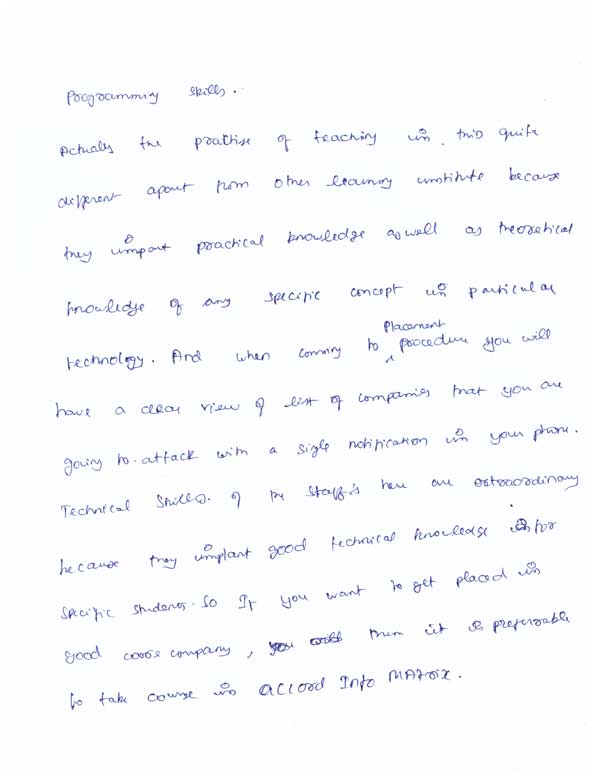 Programming skills.
Actually the practise of teaching in this quite
different apart from other learning institute because
they impart practical knowledge as well as theoretical
knowledge of any specific concept in particular
technology. And when coming to placement procedure you will
have a clear view of list of companies that you are
going to attack with a single notification in your phone.
Technical Skills of the staff's here are extraordinary
because they implant good technical knowledge for
specific students. So If you want to get placed in
good core company, then it is preferrable
to take course in Accord Info Matrix.